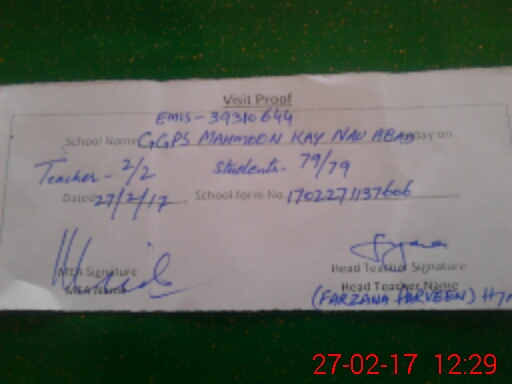 Visit Proof
EMIS - 39310644
School Name GGPS MAHMOON KAY NAU ABAD day on
Teacher - 2/2 Students - 79/79
Dated 27/2/17 School form No 1702271137606
MEA Signature Head Teacher Signature
MEA Name Head Teacher Name
(FARZANA PARVEEN)
27-02-17 12:29